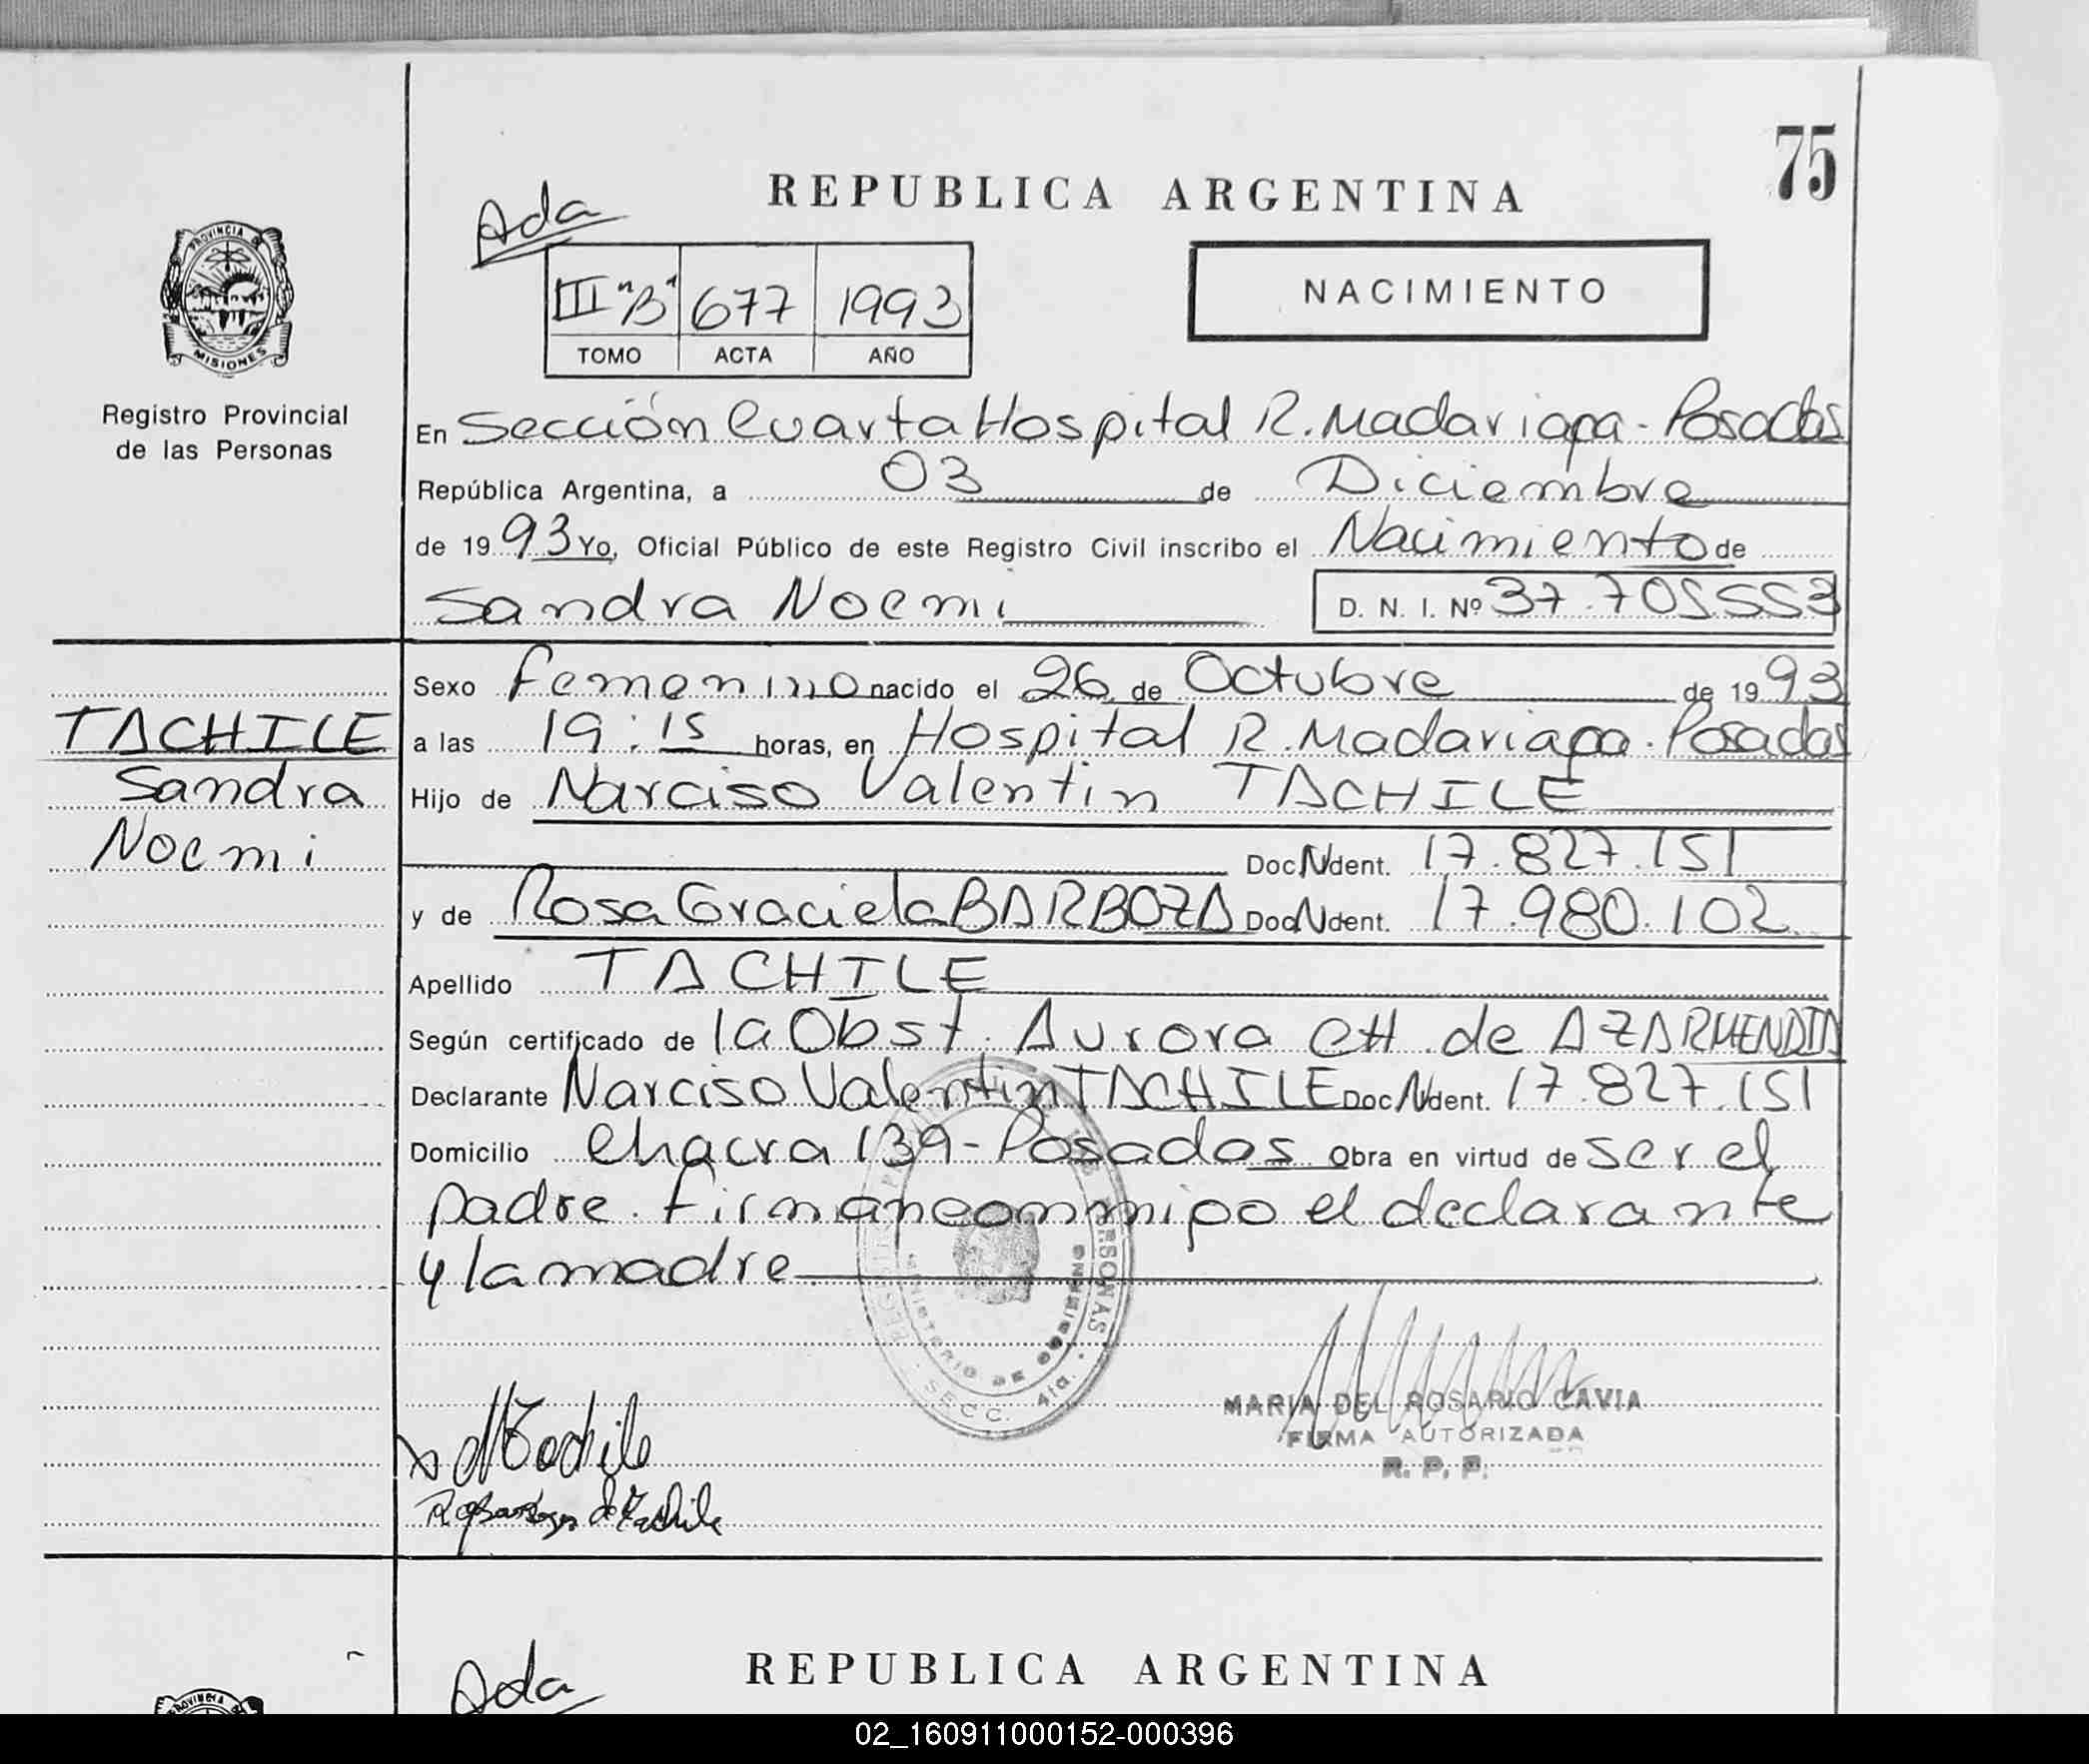 75
REPUBLICA ARGENTINA
Ada
PROVINCIA DE
MISIONES
Registro Provincial
de las Personas
III "B" 677 1993
TOMO ACTA AÑO
NACIMIENTO
En Sección Cuarta Hospital R. Madariaga - Posadas
República Argentina, a 03 de Diciembre
de 1993 Yo, Oficial Público de este Registro Civil inscribo el Nacimiento de
Sandra Noemi D. N. I. Nº 37.705.553
TACHILE
Sandra
Noemi
Sexo femenino nacido el 26 de Octubre de 1993
a las 19:15 horas, en Hospital R. Madariaga. Posadas
Hijo de Narciso Valentin TACHILE
Doc. Ident. 17.827.151
y de Rosa Graciela BARBOZA Doc. Ident. 17.980.102
Apellido TACHILE
Según certificado de la Obst. Aurora CH. de AZARMENDIA
Declarante Narciso Valentin TACHILE Doc. Ident. 17.827.151
Domicilio Chacra 139 - Posadas Obra en virtud de ser el
padre. firman conmigo el declarante
y la madre
MINISTERIO DE GOBIERNO
SECC. 4ta.
MARIA DEL ROSARIO CAVIA
FIRMA AUTORIZADA
R. P. P.
Ada
REPUBLICA ARGENTINA
02_160911000152-000396